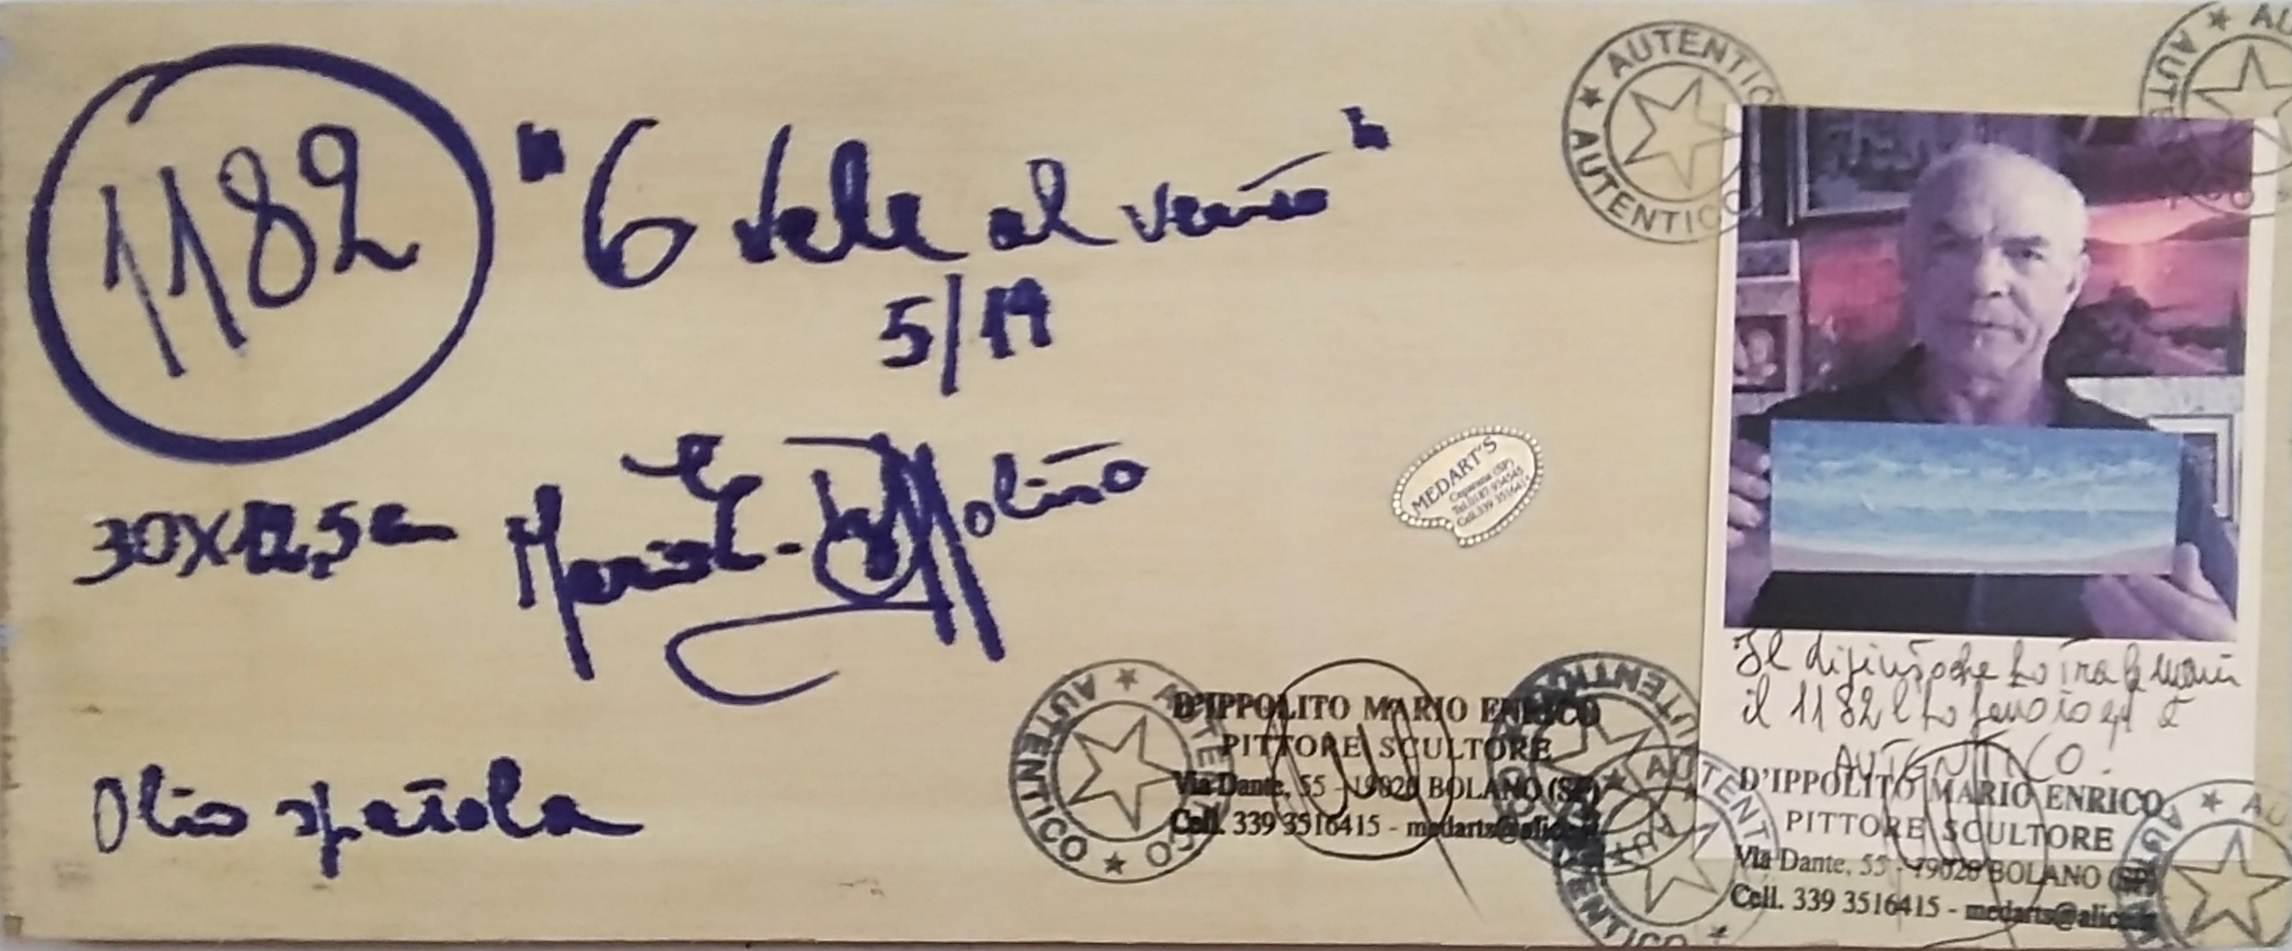 1182
"6 vele al vento"
5/19
30X12,5cm
Mario E. D'Ippolito
Olio spatola
AUTENTICO ★ AUTENTICO
MEDART'S
Caparana (SP)
Tel. 0187 934545
Cell. 339 3516414
AUTENTICO ★ AUTENTICO
D'IPPOLITO MARIO ENRICO
PITTORE SCULTORE
Via Dante, 55 - 19020 BOLANO (SP)
Cell. 339 3516415 - medarts@alice
Il dipinto che ho tra le mani
il 1182 e ho fatto è
AUTENTICO.
D'IPPOLITO MARIO ENRICO
PITTORE SCULTORE
Via Dante, 55 - 19020 BOLANO (SP)
Cell. 339 3516415 - medarts@alice